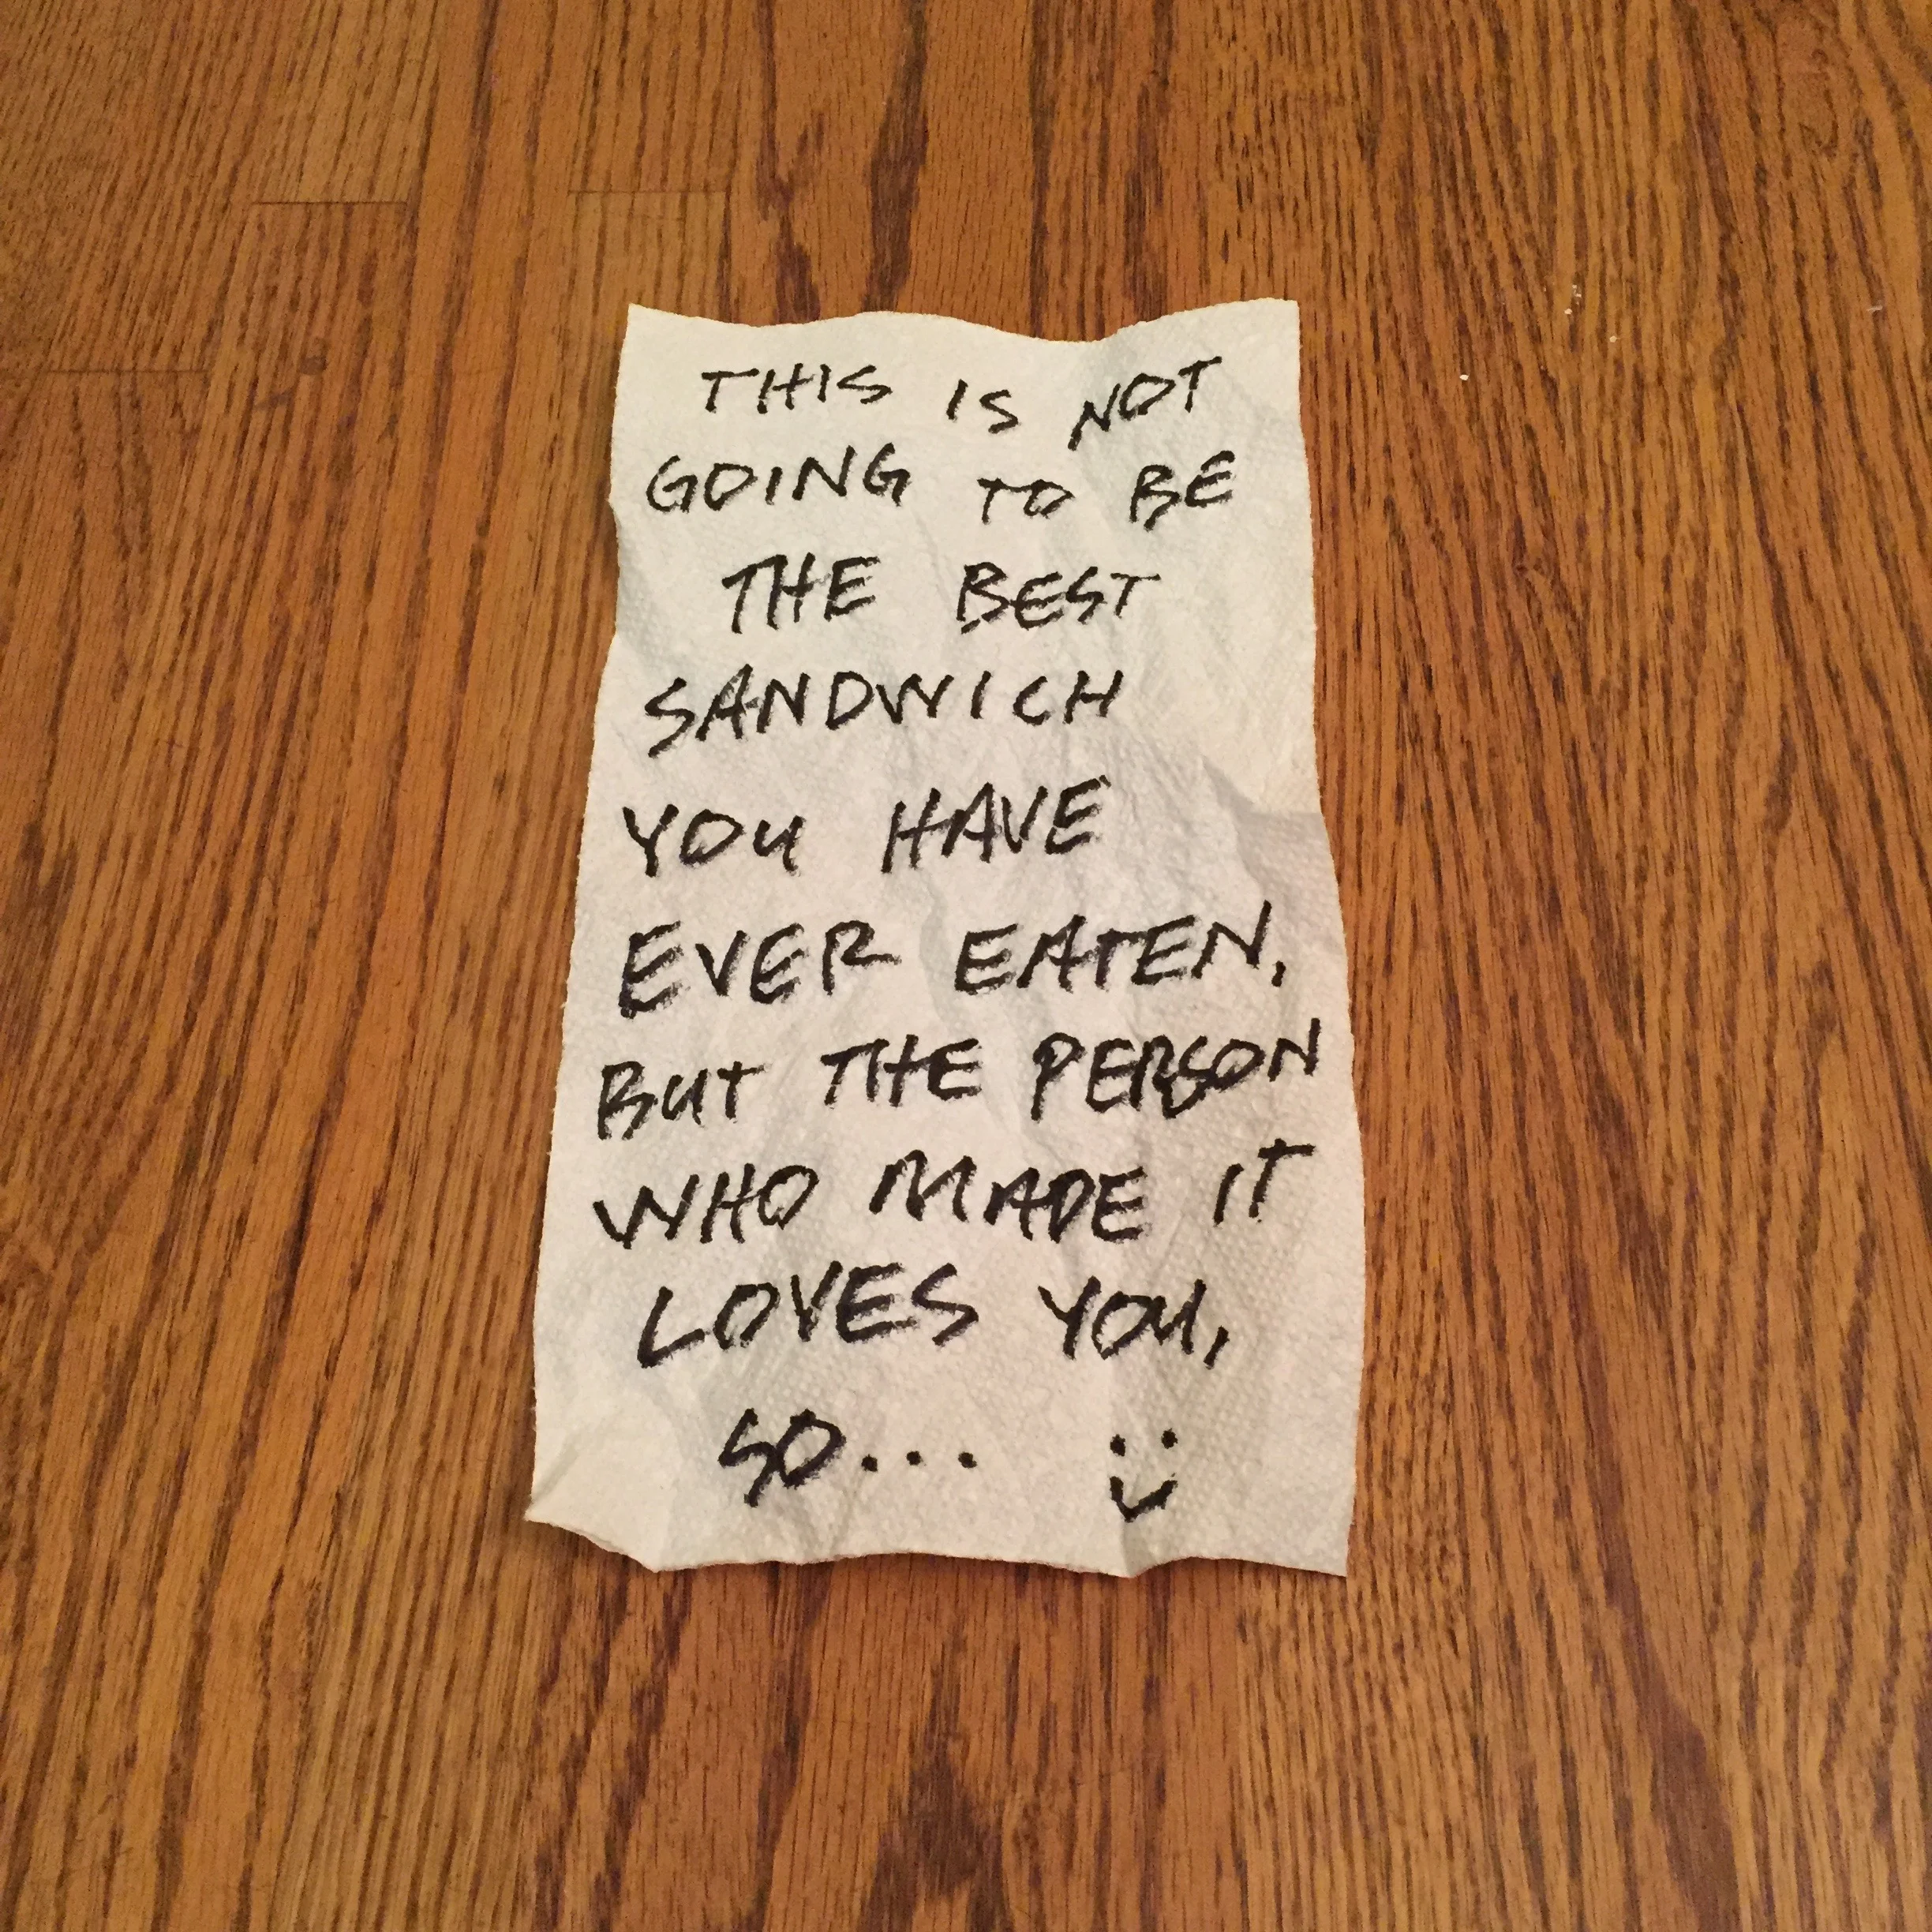 THIS IS NOT
GOING TO BE
THE BEST
SANDWICH
YOU HAVE
EVER EATEN.
BUT THE PERSON
WHO MADE IT
LOVES YOU,
SO... :)